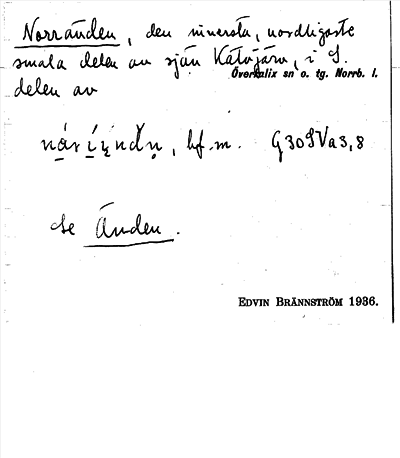 Norränden, den innersta, nordligaste
smala delen av sjön Kätöjärv, i S.
delen av Överkalix sn o. tg. Norrb. l.
hf. m. G30SVa3,8
Se Änden.
EDVIN BRÄNNSTRÖM 1936.